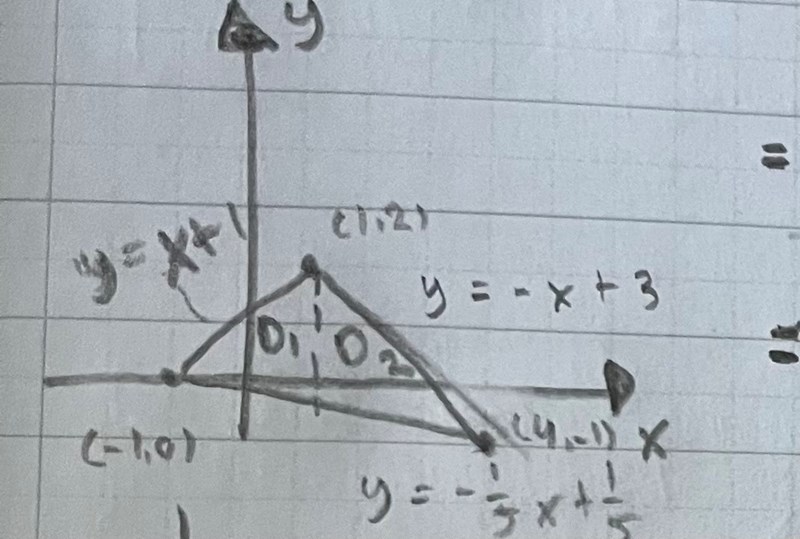 y
=
(1,2)
y = x+1
y = -x + 3
D1 D2
(-1,0)
(4,-1) x
y = -1/5 x + 1/5